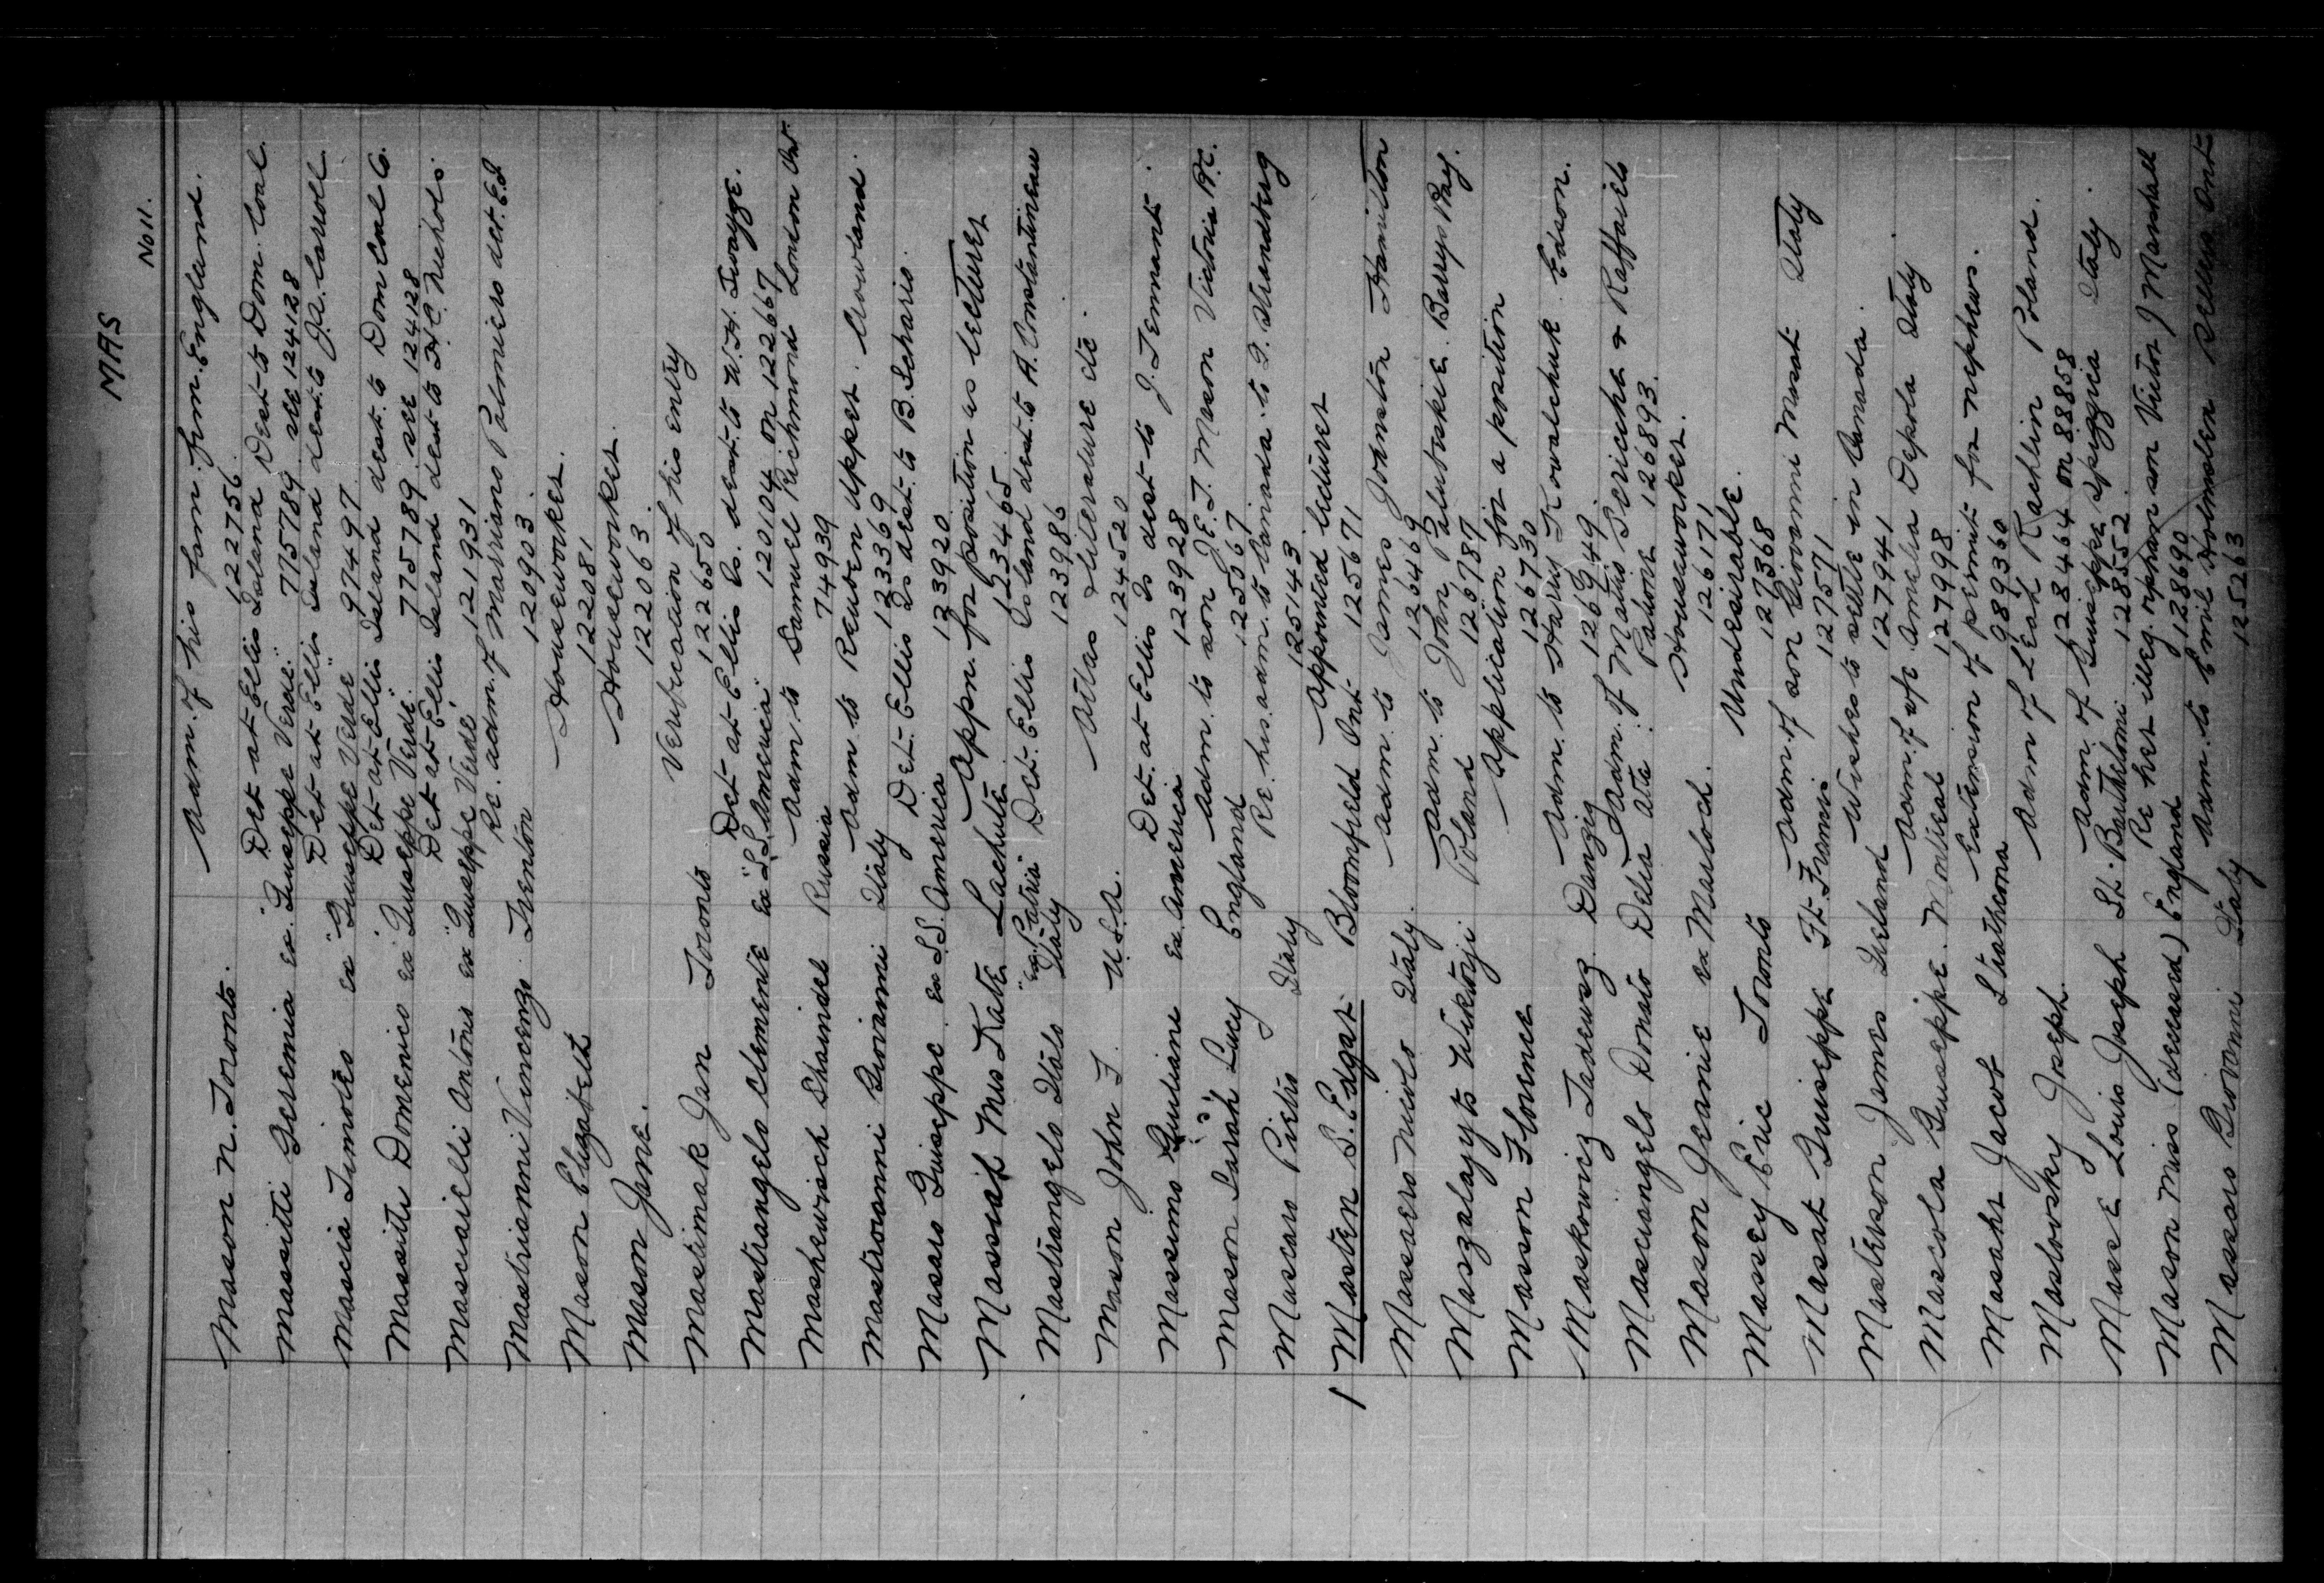 MAS
No 11.
Masson N. Toronto. Adm. of his fam. from England.
122756
Massitti Geremia ex "Guiseppe Verdi" Det at Ellis Island Dest to Dom. Coal
775789 see 124128
Mascia Timoteo ex "Guiseppe Verde" Det at Ellis Island dest. to J.A. Carroll
97497
Massitti Domenico ex "Guiseppe Verde" Det at Ellis Island dest. to Dom Coal Co.
775789 see 124128
Masciarelli Antonio ex "Guiseppe Verde" Det at Ellis Island dest to H.C. Nichols
121931
Mastrianni Vincenzo Trenton Re. adm. of Marriano Palmiero det. E.I
120903
Mason Elizabeth Houseworker.
122081
Mason Jane. Houseworker
122063
Mastimak Jan Toronto Verification of his entry
122650
Mastrangelo Clemente ex "S.S. America" Det at Ellis Is. dest. to W.H. Twayge.
120104 on 122667
Mashewisch Shaindel Russia Adm to Samuel Richmond London Ont.
74939
Mastroianni Giovanni Italy Adm to Reuben Upper. Crowland
123369
Masaro Guiseppe ex S.S. America Det. Ellis Is dest. to B. Schario.
123920
Massiah Mrs Kate Lachute Appn. for position as lecturer
123465
Mastrangelo Italo ex "Patria" Italy Det. Ellis Island dest. to A. Constantineau
123986
Mason John F. U.S.A. Atlas Literature etc.
124520
Massimo Giuliani ex America Det. at Ellis Is dest to J. Tennant.
123928
Mason Sarah Lucy England Adm. to son J.E.T. Mason Victoria B.C.
125067
Mascaro Pietro Italy Re his adm. to Canada to F. Strendberg
125143
1 Masten S. Edgar Bloomfield Ont Appointed lecturer
125671
Massaero Nicolo Italy. Adm. to James Johnston Hamilton
126469
Maszalayyto Wiktorji Poland Adm. to John Palutoskie Barrys Bay.
126787
Masson Florence Application for a position
126730
Maskowicz Tadeusz Danzig Adm. to Harry Kowalchuk Edson.
126949
Masciangelo Donato Delia Alta Adm. of Matus Sericcha & Raffaielo
Padione 126893.
Masson Jeanie ex Marloch. Houseworker.
126171
Massey Eric Toronto Undesirable.
127368
Masat Guiseppe Ft. Francis Adm. of son Giovanni Masat Italy
127571
Masterson James Ireland Wishes to settle in Canada.
127941
Mascola Guiseppe. Montreal Adm. of wfe Amelia Depola Italy
127998
Masahr Jacob Strathcona Extension of permit for nephews.
989360
Maslovsky Joseph. Adm of Leah Rachlin Poland.
128464 on 88858
Masse Louis Joseph St. Barthelomi Adm. of Guiseppe Speggia Italy.
128552
Mason Miss (deceased) England Re her illeg. orphan son Victor J Marshall
128690
Massaro Giovanni Italy Adm. to Emil Holmsten Ont
125263